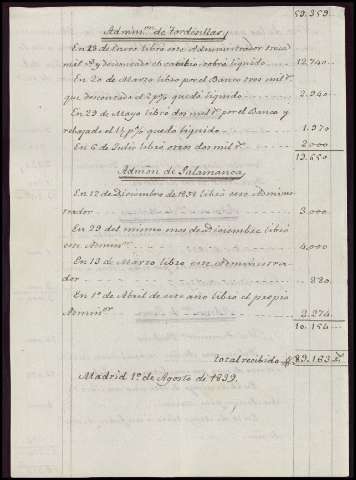 59.359.
Admin.ᵒⁿ de Tordesillas
En 18 de Enero libró este Administrador trece
mil r.ˢ y descontado el cambio cobré liquido 12.740
En 20 de Marzo libró por el Banco tres mil r.ˢ
que descontado el 2 p% quedó liquido 2.940
En 29 de Mayo libró dos mil r.ˢ por el Banco y
rebajado el 1½ p% quedo liquido 1.970
En 6 de Julio libró otros dos mil r.ˢ 2000
19.650
Admón de Salamanca
En 12 de Diciembre de 1838 libró este Adminis-
trador 3.000
En 29 del mismo mes de Diciembre libró
este Admin.ᵒʳ 4,000
En 13 de Marzo libró este Administra-
dor 880
En 1º de Abril de este año libró el propio
Admin.ᵒʳ 2.274
10.154
Total recibido 89.163
Madrid 1º de Agosto de 1839.